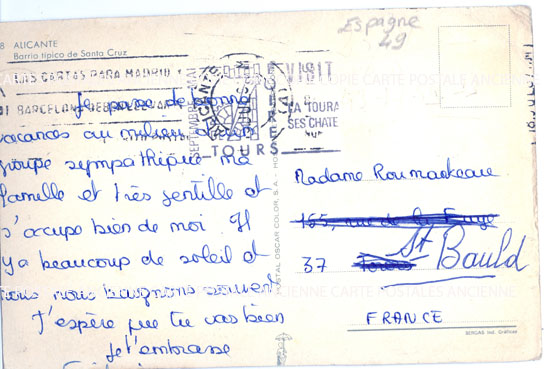 8 ALICANTE
Barrio típico de Santa Cruz
Espagne
49
CARTAS PARA MADRID Y
BARCELONA DEBEN LLEVAR
VISIT
LA TOURA
SES CHATE
TOURS
SEPTEMBRE-MAI
Je passe de bonnes
vacances au milieu d'un
groupe sympathique ma
famille et très gentille et
s'occupe bien de moi. Il
y a beaucoup de soleil et
nous nous baignons souvent
J'espère que tu vas bien
Je t'embrasse
Madame Roumackeau
rue de la
St Bauld
37
FRANCE
POSTAL OSCAR COLOR, S.A.
BERGAS Ind. Gráficas
COPIE CARTE POSTALE ANCIENNE
CARTE POSTALES ANCIENNE